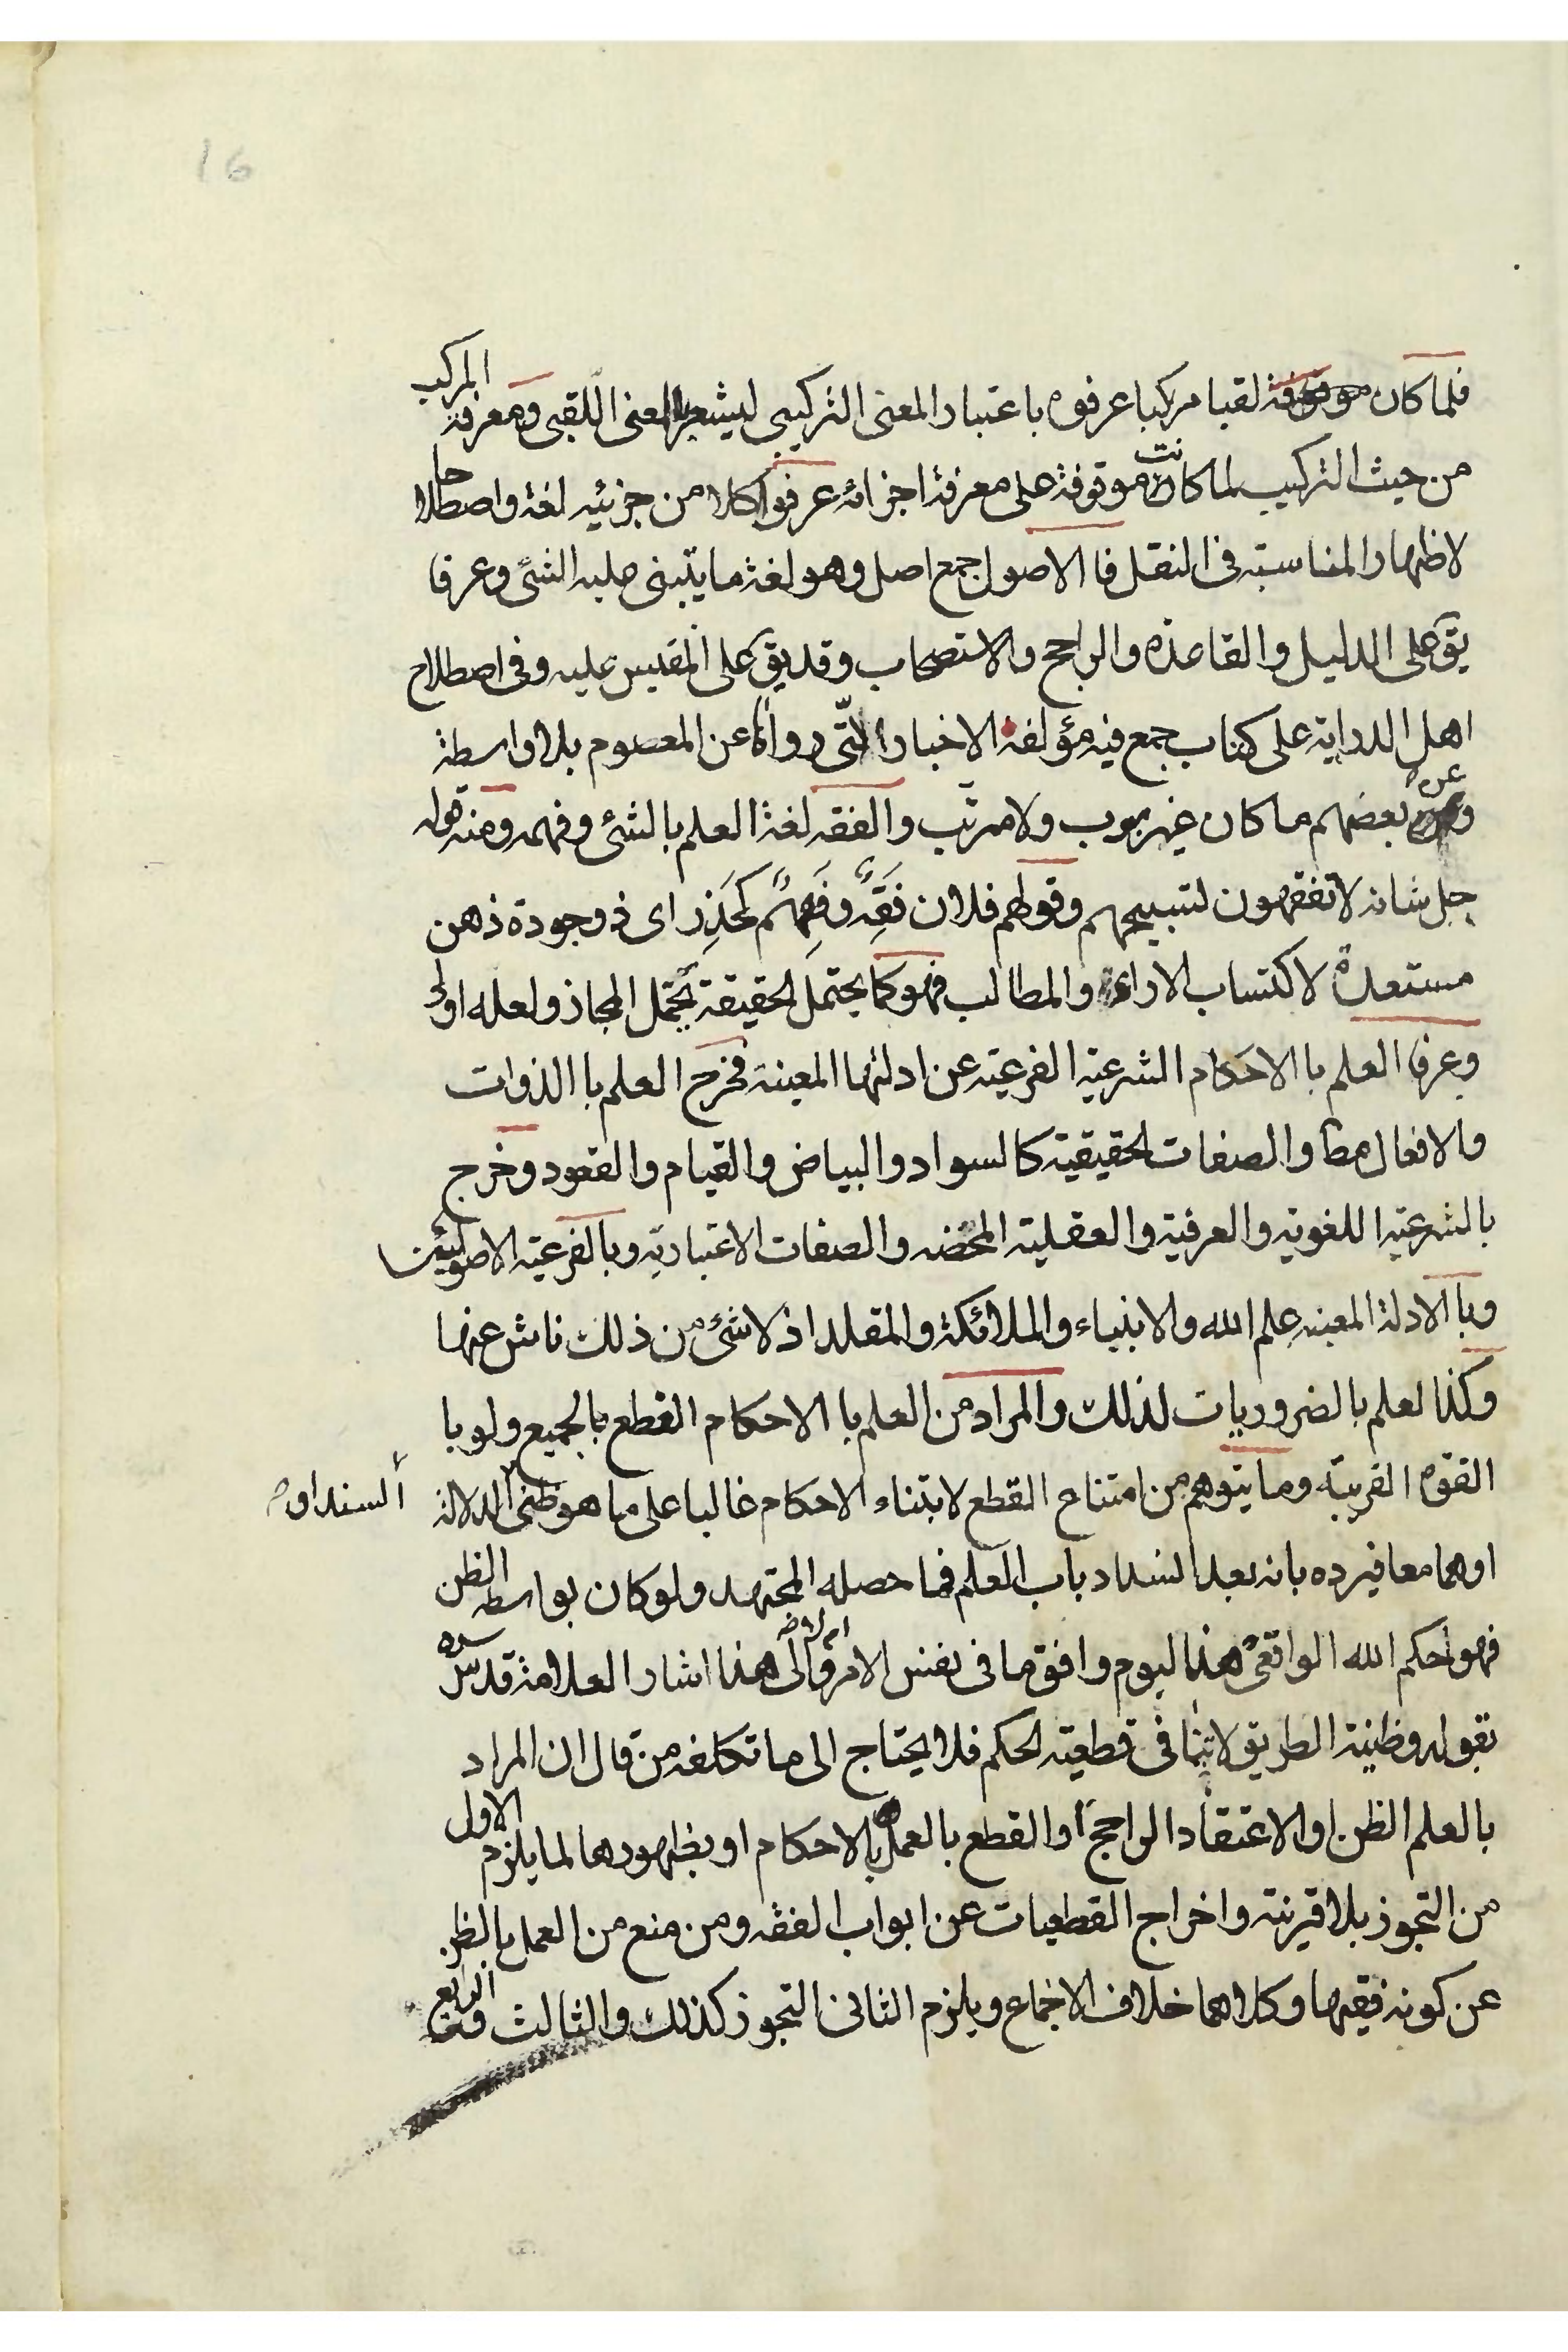 16
فلما كان لقبا مركبا عرفوه باعتبار المعنى التركيبى ليشعر بالمعنى اللقبى ومعرفة المركب
من حيث التركيب لما كانت موقوفة على معرفة اجزائه عرفوا كلا من جزئيه لغة واصطلاحا
لاظهار المناسبته فى النقل فا الاصول جمع اصل وهو لغة ما يبتنى عليه الشئ وعرفا
يق على الدليل والقاعده والراجح والاستصحاب وقد يق على المقيس عليه وفى اصطلاح
اهل الدرايه على كتاب جمع فيه مؤلفه الاخبار التى رواها عن المعصوم بلا واسطة
وعن بعضهم ما كان غير مبوب ولا مرتب والفقه لغة العلم بالشئ وفهمه ومنه قوله
جل شانه لا تفقهون لتسبيحهم وقولهم فلان فَقِهٌ وفَهِمٌ كحَذِر اى ذو جودة ذهن
مستعدة لاكتساب الاراء والمطالب فهو كما يحتمل الحقيقة يحتمل المجاز ولعله اولى
وعرفا العلم با الاحكام الشرعية الفرعية عن ادلتها المعينة فخرج العلم با الذوات
والافعال مطا والصفات الحقيقية كالسواد والبياض والقيام والقعود وخرج
بالشرعية اللغويه والعرفية والعقلية المحضه والصفات الاعتباريه وبالفرعية الاصوليئت
وبا الادلة المعينه علم الله والانبياء والملائكة والمقلد اذ لا شئ من ذلك ناش عنها
وكذا لعلم بالضروريات لذلك والمراد من العلم با الاحكام القطع بالجميع ولو با
القوه القريبه وما يتوهم من امتناع القطع لابتناء الاحكام غالبا على ما هو ظنى الدلالة
السند او
او هما معا فيرده بانه بعد انسداد باب العلم فما حصله المجتهد ولو كان بواسطه الظن
فهو حكم الله الواقعى هذا ليوم وافق ما فى نفس الامر ام لا والى هذا اشار العلامة قدس سره
بقوله وظنية الطريق لا تنافى قطعية الحكم فلا يحتاج الى ما تكلفه من قال ان المراد
بالعلم الظن او الاعتقاد الراجح او القطع بالعمل بالاحكام او بظهورها لما يلزم الاول
من التجوز بلا قرينة واخراج القطعيات عن ابواب الفقه ومن منع من العمل بالظن
عن كونه فقيها وكلاهما خلاف الاجماع ويلزم الثانى التجوز كذلك والثالث والرابع